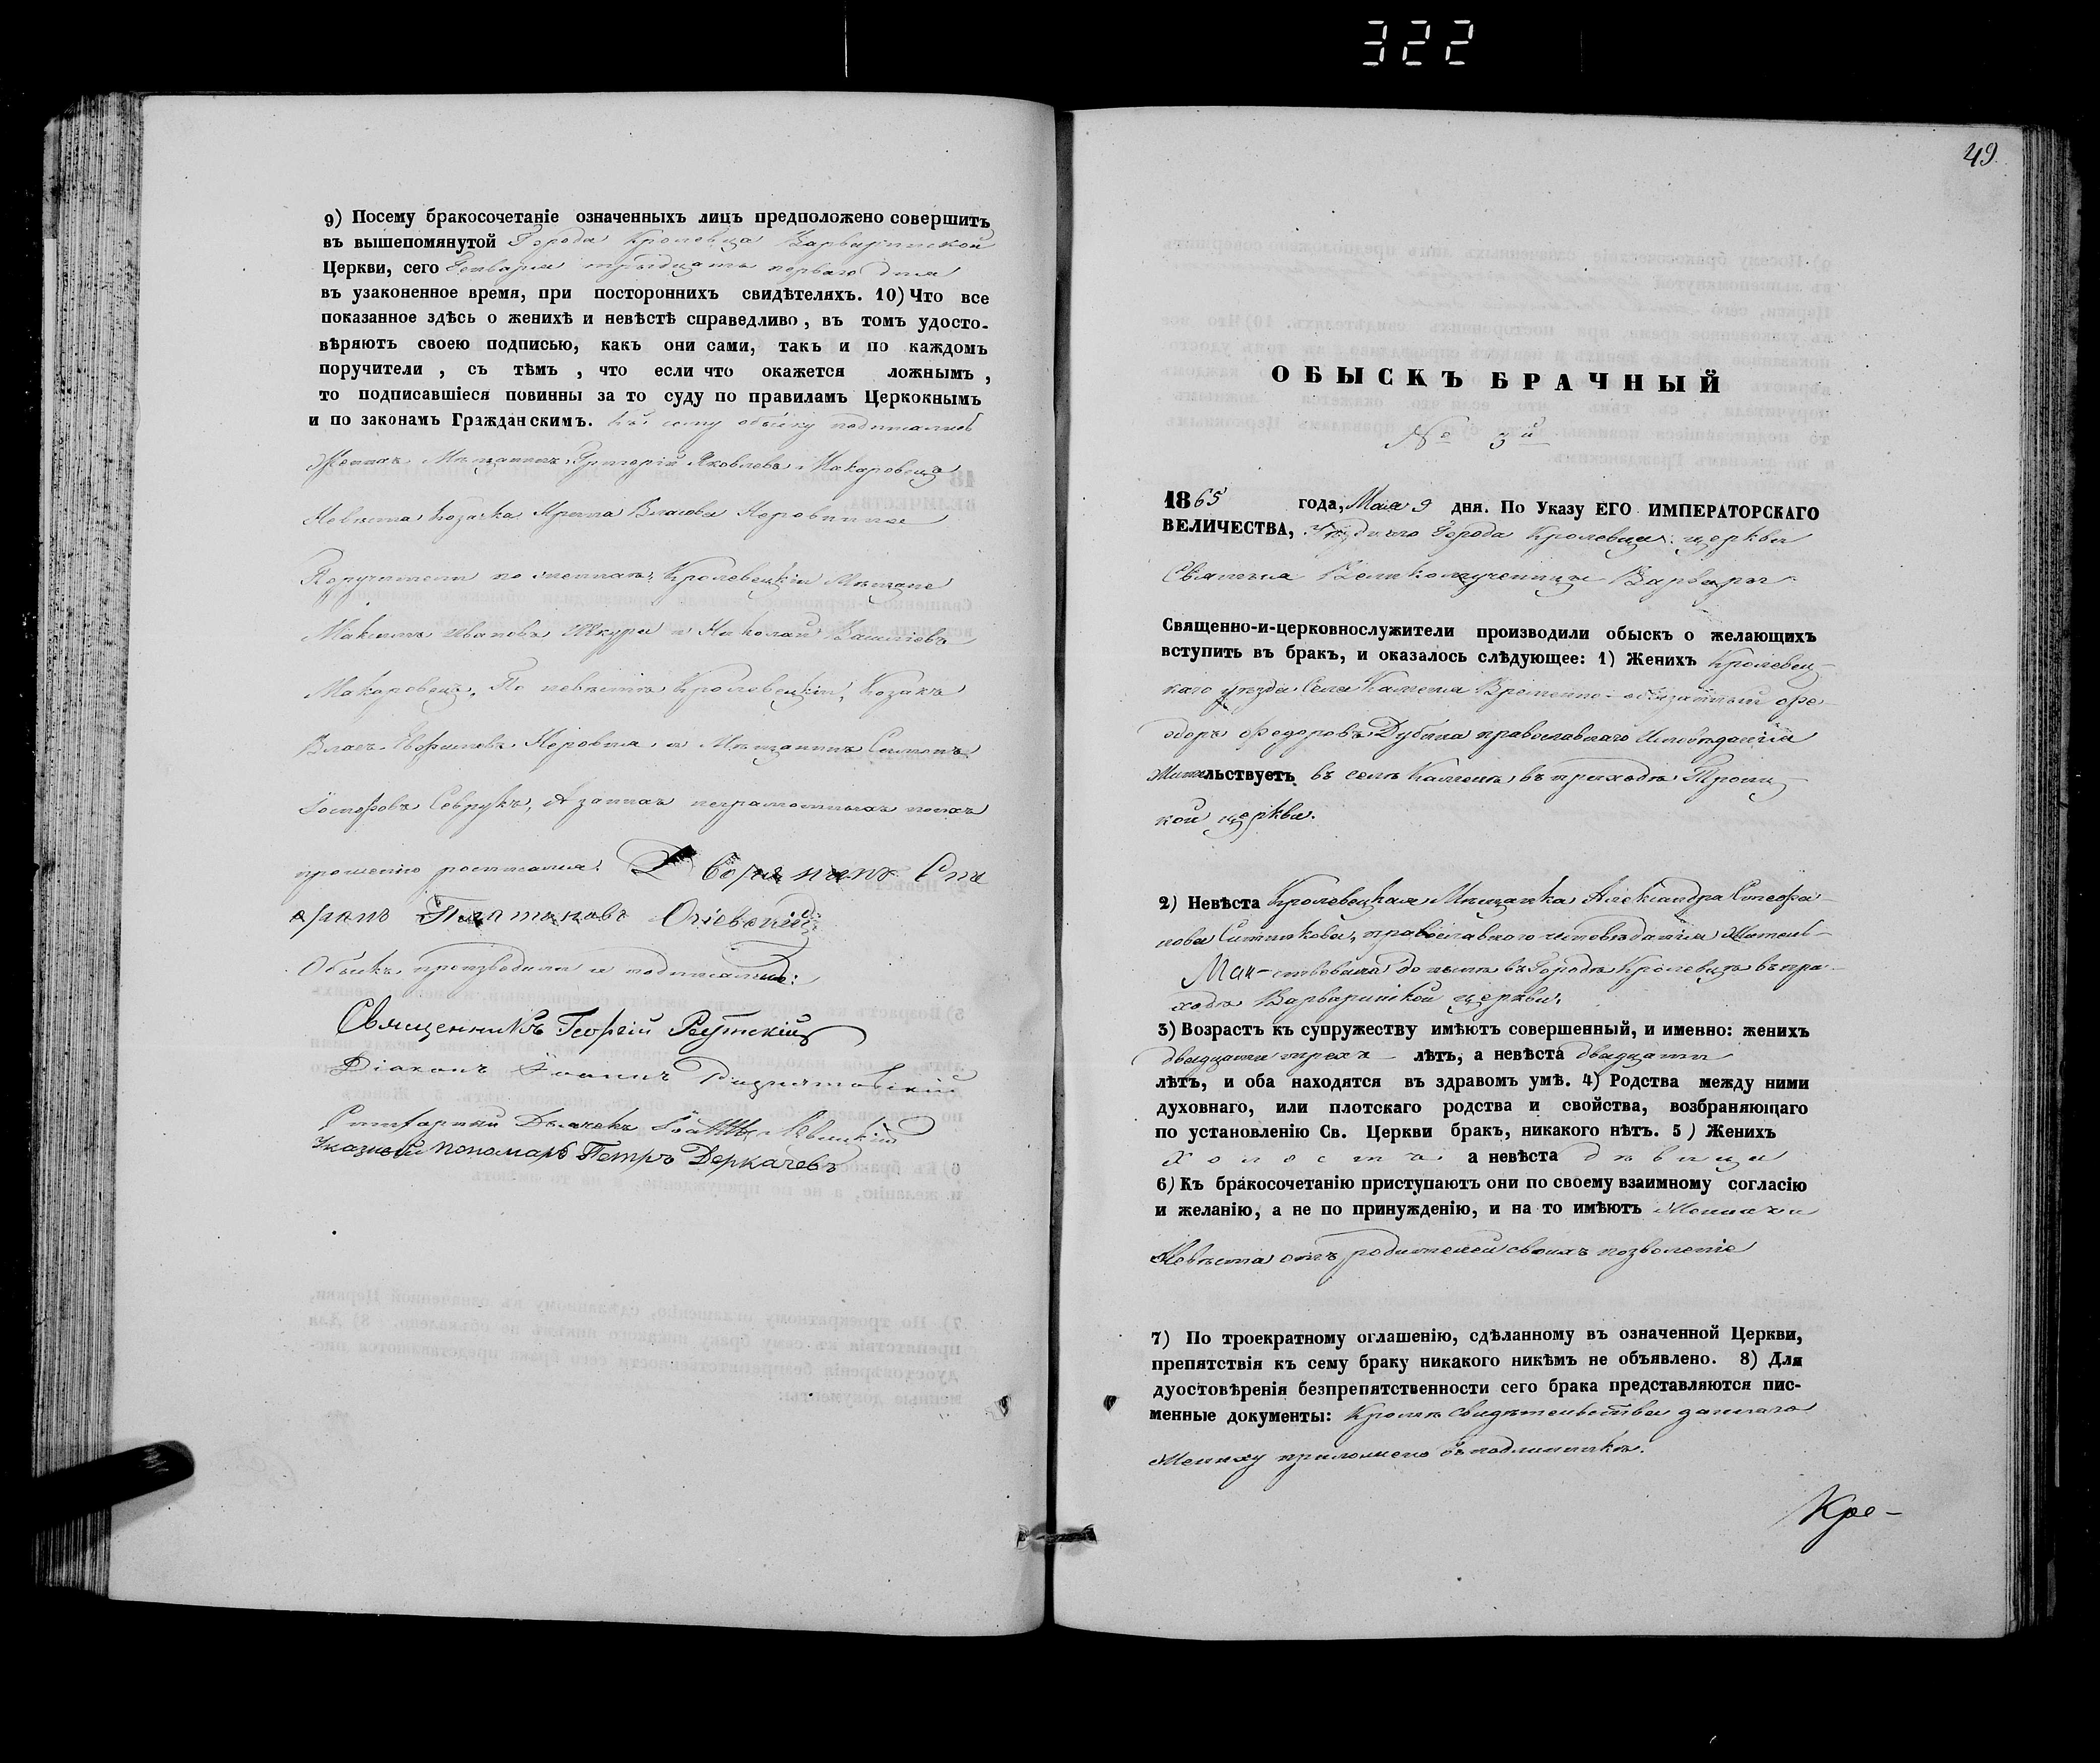 322
9) Посему бракосочетаніе означенныхъ лицъ предположено совершить
въ вышепомянутой Города Кролевца Варваринской
Церкви, сего Генваря тридцать перваго дня
въ узаконенное время, при постороннихъ свидѣтеляхъ. 10) Что все
показанное здѣсь о женихѣ и невѣстѣ справедливо, въ томъ удосто-
вѣряютъ своею подписью, какъ они сами, такъ и по каждомъ
поручители, съ тѣмъ, что если что окажется ложнымъ,
то подписавшіеся повинны за то суду по правиламъ Церкокнымъ
и по законамъ Гражданскимъ. Къ сему обыску подписались
Женихъ Мѣщанинъ Григорій Яковлевъ Макаровецъ
Невѣста Козачка Власова
Поручители по женихѣ Кролевецкіи Мѣщане
Максимъ Ивановъ Шкура и Николай Василіевъ
Макаровецъ, По невѣстѣ Кролевецкіи, Козакъ
Власъ и Мѣщанинъ Симеонъ
Іосифовъ Севрукъ, А за нихъ неграмотныхъ по ихъ
прошенію росписался:
Обыскъ производили и подписались:
Священникъ Георгій Реутскій
Діаконъ Іоаннъ
Дьячекъ
Указный пономарь Петръ Деркачевъ
49
ОБЫСКЪ БРАЧНЫЙ
№ 3й
1865 года, Мая 9 дня. По Указу ЕГО ИМПЕРАТОРСКАГО
ВЕЛИЧЕСТВА, Города Кролевца церкви
Святыя Великомученицы Варвары
Священно-и-церковнослужители производили обыскъ о желающихъ
вступить въ бракъ, и оказалось слѣдующее: 1) Женихъ Кролевец-
каго уѣзда Села Каменя Временно-обязанный Ѳе-
доръ Ѳедоровъ Дубина православнаго Исповѣданія
Жительствуетъ въ селѣ Каменѣ въ приходѣ Троиц-
кой церкви.
2) Невѣста Кролевецкая Мѣщанка Александра Стефа-
нова Ситникова, православнаго исповѣданія Жетель-
ствовала до нынѣ въ Городѣ Кролевцѣ въ при-
ходѣ Варваринской церкви.
3) Возрастъ къ супружеству имѣютъ совершенный, и именно: женихъ
двадцати трехъ лѣтъ, а невѣста двадцати
лѣтъ, и оба находятся въ здравомъ умѣ. 4) Родства между ними
духовнаго, или плотскаго родства и свойства, возбраняющаго
по установленію Св. Церкви бракъ, никакого нѣтъ. 5) Женихъ
холостъ а невѣста дѣвица
6) Къ бракосочетанію приступаютъ они по своему взаимному согласію
и желанію, а не по принужденію, и на то имѣютъ Женихъ и
Невѣста отъ родителей своихъ позволеніе
7) По троекратному оглашенію, сдѣланному въ означенной Церкви,
препятствія къ сему браку никакого никѣмъ не объявлено. 8) Для
дуостовѣренія безпрепятственности сего брака представляются пис-
менные документы: Кромѣ свидѣтельства даннаго
Жениху приложено въ подлинникѣ.
Кре-